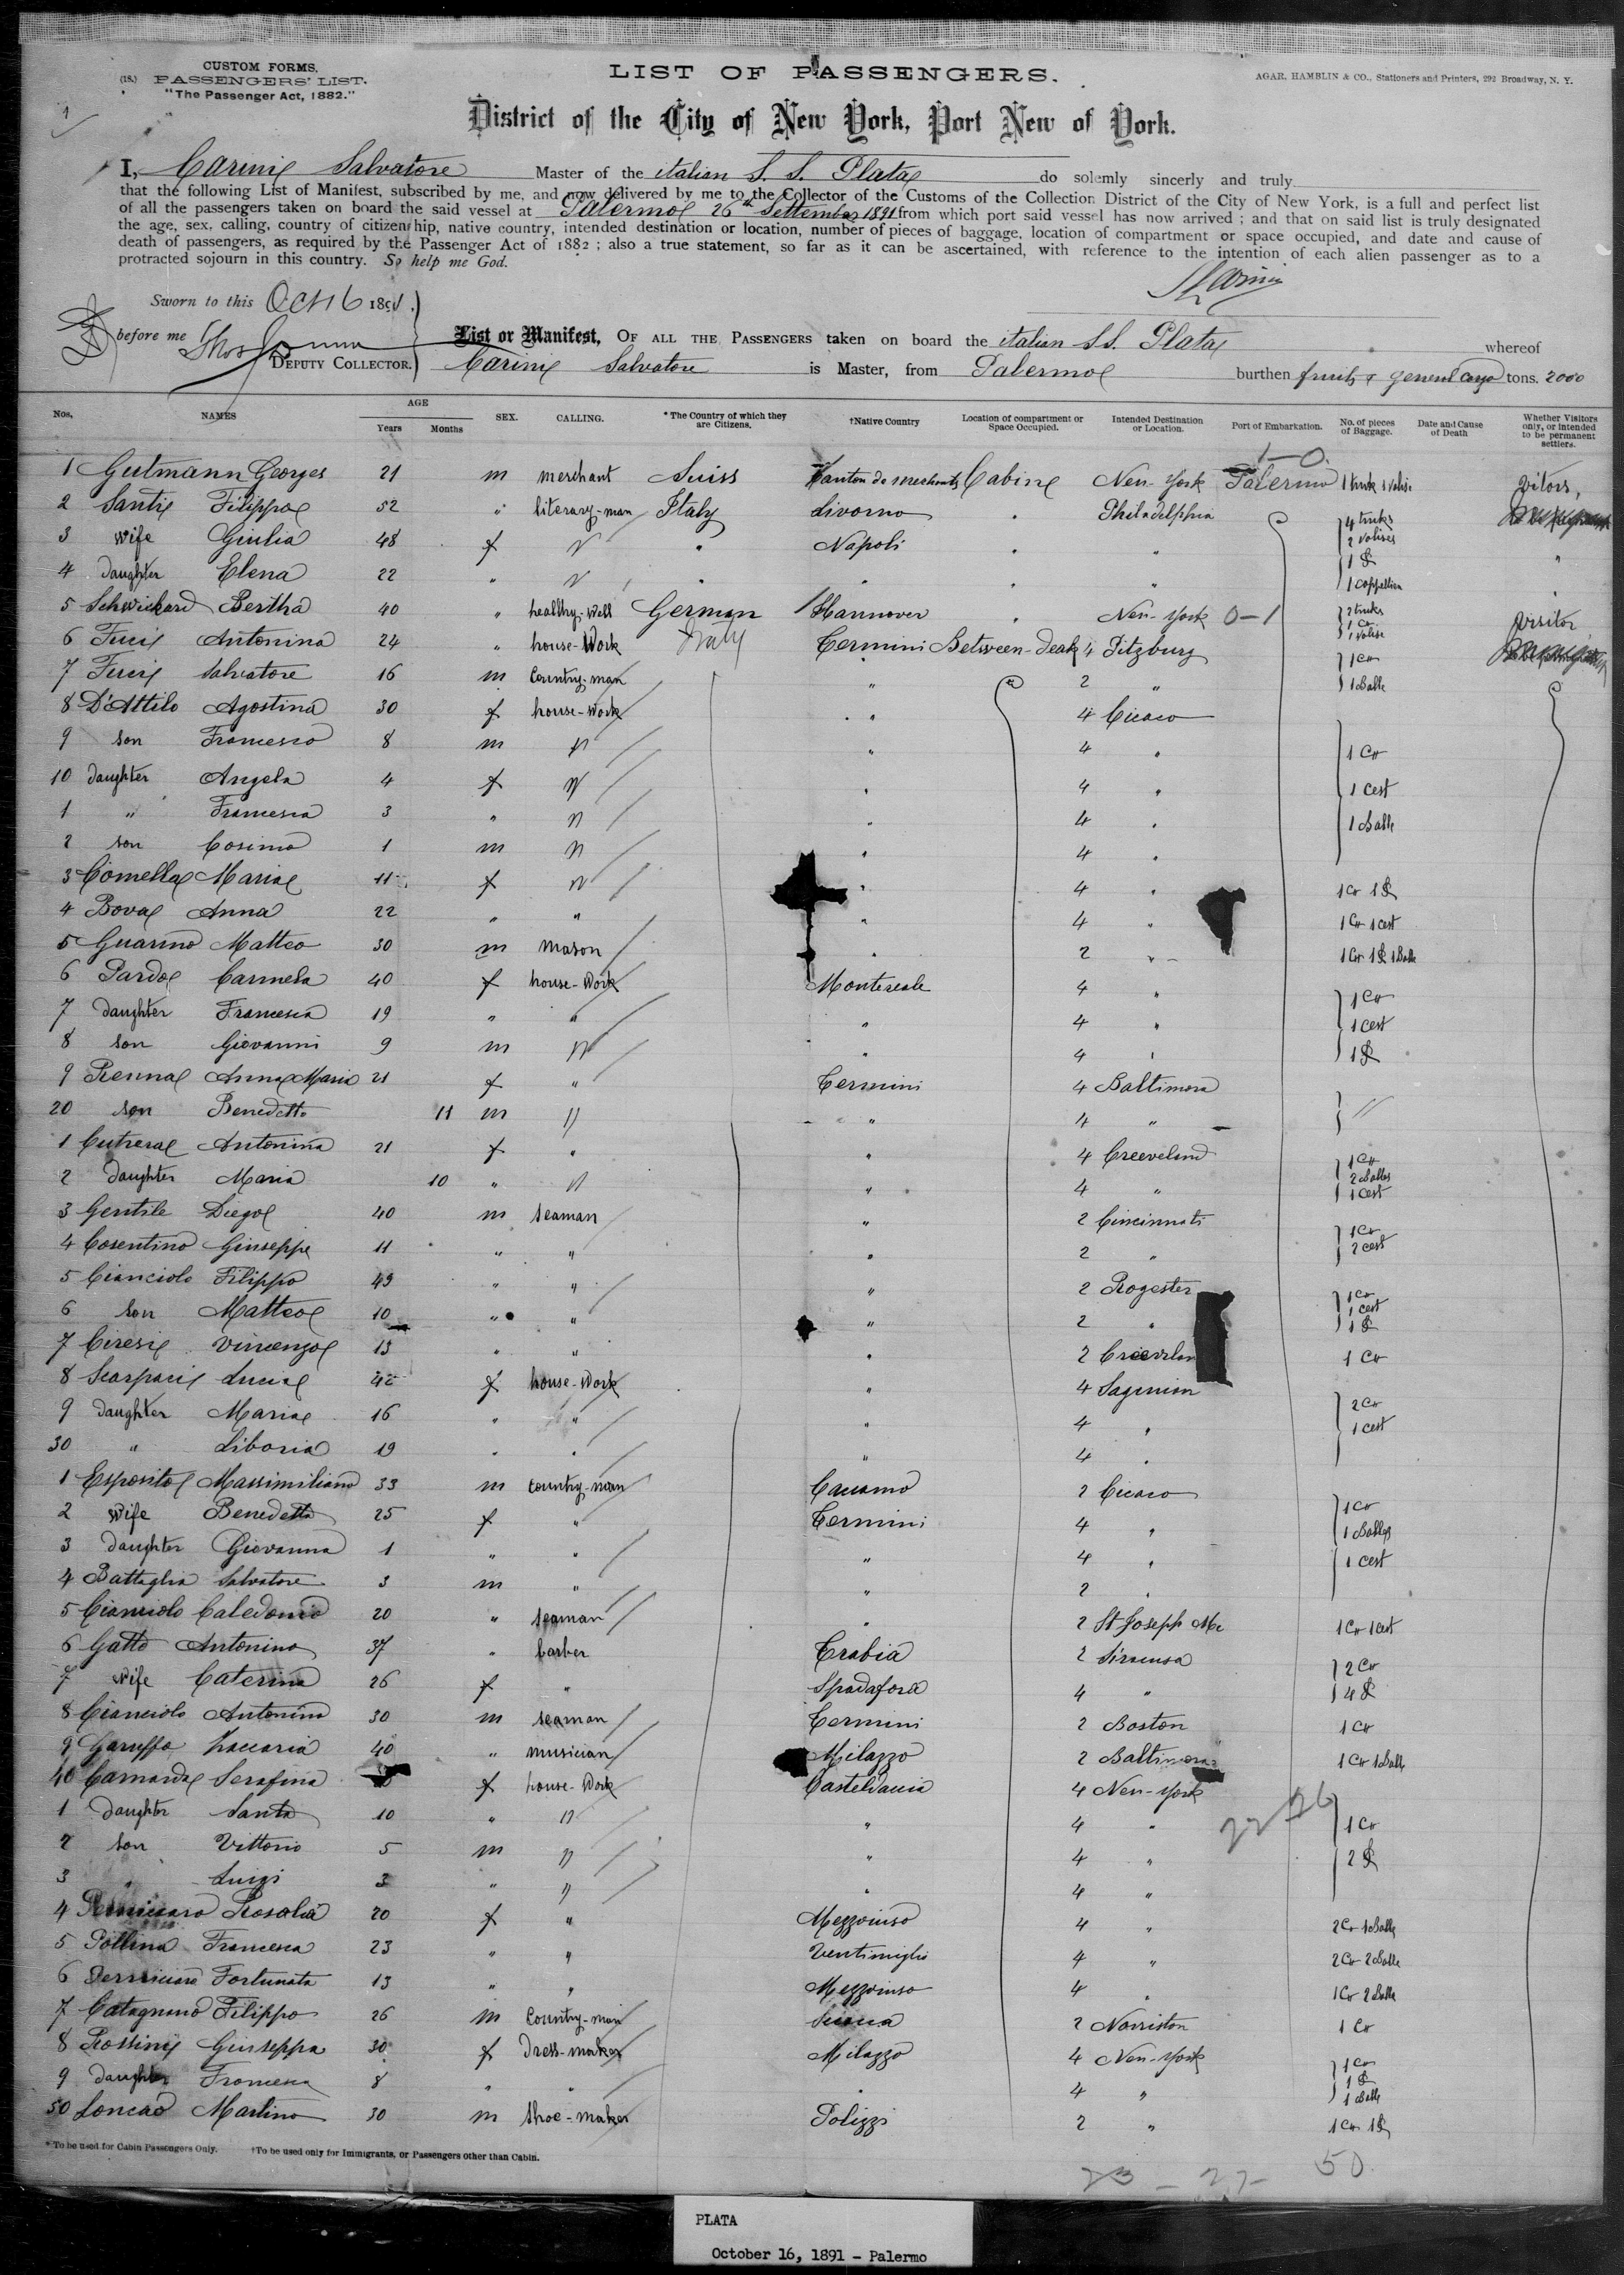 CUSTOM FORMS.
(18.) PASSENGERS' LIST.
"The Passenger Act, 1882."
LIST OF PASSENGERS.
AGAR, HAMBLIN & CO., Stationers and Printers, 292 Broadway, N. Y.
1
District of the City of New York, Port New of York.
I, Carini Salvatore Master of the italian S. S. Plata do solemly sincerly and truly
that the following List of Manifest, subscribed by me, and now delivered by me to the Collector of the Customs of the Collection District of the City of New York, is a full and perfect list
of all the passengers taken on board the said vessel at Palermo 26th Settember 1891 from which port said vessel has now arrived ; and that on said list is truly designated
the age, sex, calling, country of citizenship, native country, intended destination or location, number of pieces of baggage, location of compartment or space occupied, and date and cause of
death of passengers, as required by the Passenger Act of 1882 ; also a true statement, so far as it can be ascertained, with reference to the intention of each alien passenger as to a
protracted sojourn in this country. So help me God.
Sworn to this Oct 16 1891.
before me
DEPUTY COLLECTOR.
List or Manifest, OF ALL THE PASSENGERS taken on board the italian S.S. Plata whereof
Carini Salvatore is Master, from Palermo burthen fruits & general cargo tons. 2000
Nos. NAMES AGE Years Months SEX. CALLING. * The Country of which they are Citizens. †Native Country Location of compartment or Space Occupied. Intended Destination or Location. Port of Embarkation. No. of pieces of Baggage. Date and Cause of Death Whether Visitors only, or intended to be permanent settlers.
1 Gutmann Georges 21 m merchant Suiss Canton de Cabine New-York Palermo 1 trunk 1 valise vitors,
2 Santi Filippo 52 " literary-man Italy Livorno " Philadelphia 4 trunks
3 wife Giulia 48 f N " Napoli " " 2 valises
4 daughter Elena 22 " N " " " " 1 cappelliera
5 Schwickard Bertha 40 " healthy-well German Hannover " New-York 0-1 visitor
6 Fuci Antonina 24 " house-work Italy Termini Between-deak 4 Pitzburg 1 Co
7 Fuci Salvatore 16 m Country-man " 2 " 1 Balle
8 D'Attilo Agostina 30 f house-work " 4 Cicaco
9 son Francesco 8 m N " 4 " 1 Co
10 daughter Angela 4 f N " 4 " 1 cest
1 " Francesca 3 " N " 4 " 1 Balle
2 son Cosimo 1 m N " 4 "
3 Comella Maria 11 f N " 4 "
4 Bova Anna 22 " " " 4 " 1 Co 1 cest
5 Guarino Matteo 30 m mason " 2 "
6 Pardo Carmela 40 f house-work Montereale 4 " 1 Co
7 daughter Francesca 19 " " " 4 " 1 cest
8 son Giovanni 9 m N " 4 "
9 Renna Anna Maria 21 f " Termini 4 Baltimora
20 son Benedetto 11 m N " 4 "
1 Cutrera Antonina 21 f " " 4 Creeveland 1 Co
2 daughter Maria 10 " N " 4 " 2 Balles 1 cest
3 Gentile Diego 40 m seaman " 2 Cincinnati 1 Co
4 Cosentino Giuseppe 11 " " " 2 " 2 cest
5 Cianciolo Filippo 49 " " " 2 Rogester 1 Co
6 son Matteo 10 " " " 2 " 1 cest
7 Ciresi Vincenzo 13 " " " 2 1 Co
8 Scarpaci Lucia 42 f house-work " 4 Saginion 2 Co
9 daughter Maria 16 " " " 4 " 1 cest
30 " Liboria 19 " " " 4 "
1 Esposito Massimiliano 33 m country-man Caccamo 2 Cicaco 1 Co
2 wife Benedetta 25 f " Termini 4 " 1 Balles
3 daughter Giovanna 1 " " " 4 " 1 cest
4 Battaglia Salvatore 3 m " " 2 "
5 Cianciolo Caledonio 20 " seaman " 2 St Joseph Mc 1 Co 1 cest
6 Gatto Antonino 37 " barber Trabia 2 Siracusa 2 Co
7 wife Caterina 26 f " Spadafora 4 "
8 Cianciolo Antonino 30 m seaman Termini 2 Boston 1 Co
9 Garuffo Zaccaria 40 " musician Milazzo 2 Baltimora 1 Co 1 Balle
40 Camarda Serafina f house-work Casteldaccia 4 New-York
1 daughter Santa 10 " N " 4 " 1 Co
2 son Vittorio 5 m N " 4 "
3 " Luigi 3 " N " 4 "
4 Rosalia 20 f " Mezzoiuso 4 " 2 Co 1 Balle
5 Pollina Francesca 23 " " Ventimiglia 4 " 2 Co 2 Balle
6 Fortunata 13 " " Mezzoiuso 4 " 1 Co 2 Balle
7 Catagnano Filippo 26 m Country-man 2 Norriston 1 Co
8 Rossini Giuseppa 30 f Dress-maker Milazzo 4 New-York 1 Co
9 daughter Francesca 8 " " " 4 " 1 Balle
50 Loncao Martino 30 m shoe-maker Polizzi 2 "
* To be used for Cabin Passengers Only. †To be used only for Immigrants, or Passengers other than Cabin.
23 - 27- 50
PLATA
October 16, 1891 - Palermo